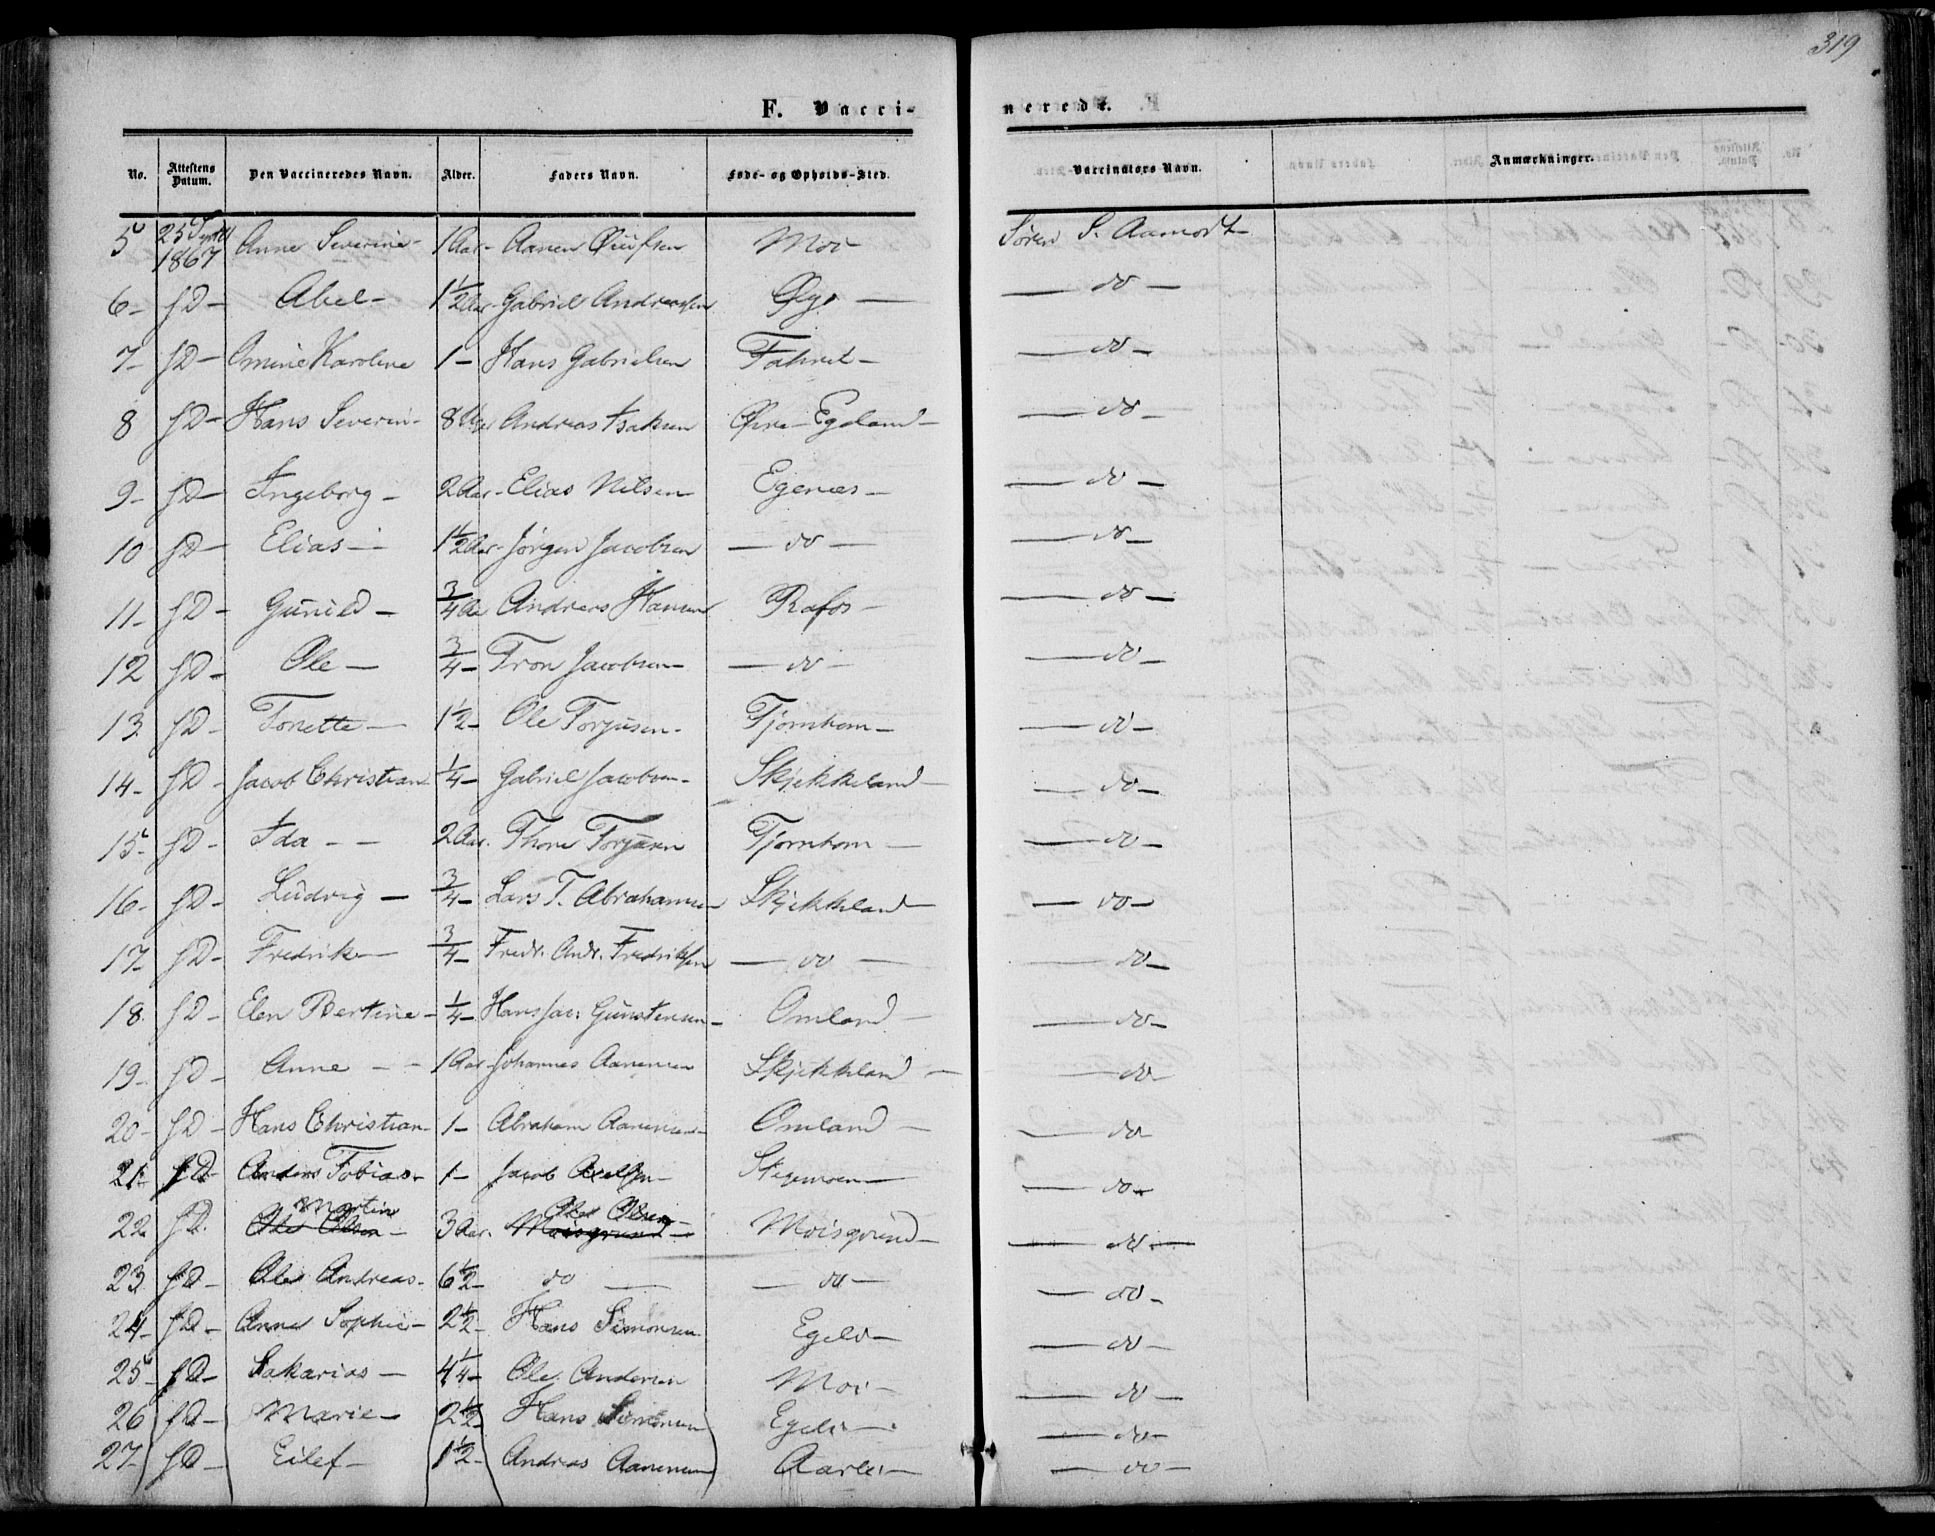 319
F. Vacci-
nerede.
No. Attestens Datum. Den Vaccineredes Navn. Alder. Faders Navn. Føde- og Opholds-Sted. Vaccinators Navn. Anmærkninger.
5 25 1867 Anne Severine - 1 Aar - Aanen Moi Søren S. Aamodt -
6 - sD - Abel - 1½ Aar - Gabriel Andreassen Øye — — do —
7 - sD - Omine Karoline 1 - Hans Gabrielsen — do —
8 sD - Hans Severin - 8 Andreas Isaksen Øvre - Egeland - — do —
9 - sD - Ingeborg - 2 Aar - Elias Nilsen Egenæs - — do —
10 sD - Elias - 1½ Aar - Jørgen Jacobsen — do — — do —
11 - sD - Gunild - ¾ Aa Andreas Hansen Rafos - — do —
12 sD - Ole — ¾ - Tron Jacobsen - — do — — do —
13 sD - Tonette — 1½ - Ole Torjusen - Tjørnhom - — do —
14 - sD - Jacob Christian ¼ - Gabriel Jacobsen - Skjekkeland - — do —
15 - sD - Ida - - 2 Aar. Thore Torjusen Tjørnhom — — do —
16 - sD - Ludvig — ¾ - Lars T. Abrahamsen Skjekkeland — — do —
17 - sD - Fredrik — ¾ - Fredr. Andr. Fredriksen — do — — do —
18 sD - Elen Bertine - ¼ - Hans Jac: Gunstensen - Omland — — do —
19 - sD - Anne - - 1 Aar - Johannes Aanensen Skjekkeland — — do —
20 - sD - Hans Christian - 1 - Abraham Aanensen - Omland — — do —
21 - sD - Anders Tobias - 1 - Jacob Axelsen - — do —
22 sD. Martin Ole Olsen - 3 Aar. Ole Olsen Moisgrund - Moisgrund - — do —
23 sD - Ole Andreas - 6½ - do — — do — — do —
24 - sD - Anne Sophie - 2½ - Hans Simonsen Egeld - — do —
25 - sD - Sakarias — 4¼ - Ole Andersen Moi - — do —
26 sD - Marie - 2½ - Hans Simonsen Egeld - — do —
27 - sD - Eilef - 1½ - Andreas Aanensen - — do —